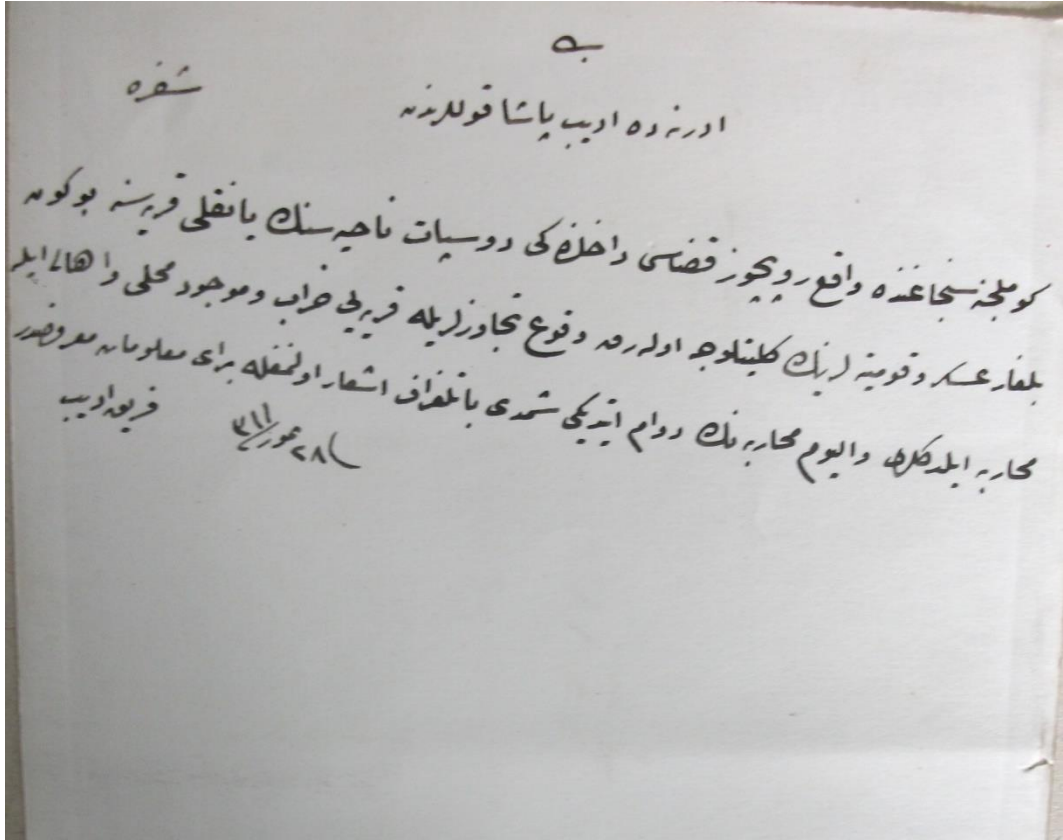 شفره
ادرنه ده اديب پاشا قوللرندن
كوملجنه سنجاغنده واقع روپچوز قضاسى داخلنده كى دوسپات ناحيه سنك يانقلى قريه سنه بوكون
بلغار عسكر وقوميته لرينك كليتلوجه اوله رق وقوع تجاوزلريله قريه يى خراب وموجود محلى واهالى ايله
محاربه ايلدكلرى واليوم محاربه نك دوام ايتديكى شمدى با تلغراف اشعار اولنمغله براى معلومات معروضدر
فى ٢٨ تموز ٣١١
فريق اديب